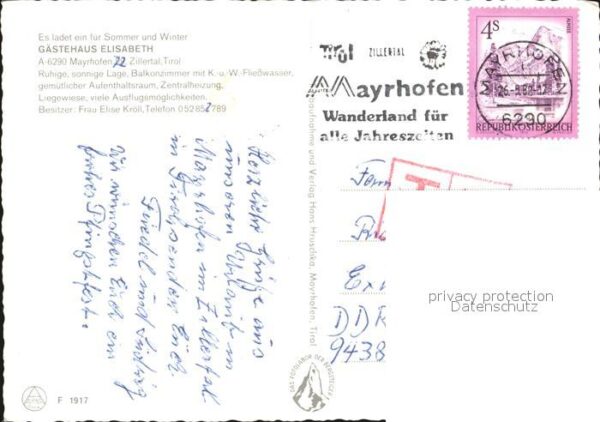 Es ladet ein für Sommer und Winter
GÄSTEHAUS ELISABETH
A-6290 Mayrhofen 72 Zillertal, Tirol
Ruhige, sonnige Lage, Balkonzimmer mit K. u. W.-Fließwasser,
gemütlicher Aufenthaltsraum, Zentralheizung,
Liegewiese, viele Ausflugsmöglichkeiten.
Besitzer: Frau Elise Kröll, Telefon 05285 2789
Herzliche Grüße aus
unserem Urlaub in
Mayrhofen im Zillertal
Euch.
Friedel und
Wir wünschen Euch ein
frohes Pfingstfest.
F 1917
Verlag Hans Hruschka, Mayrhofen, Tirol
DAS EDELLABOR DER BERGSTEIGER
Tirol ZILLERTAL
Mayrhofen
Wanderland für
alle Jahreszeiten
MAYRHOFEN
6290
4S
REPUBLIK ÖSTERREICH
T
Fam
DDR
9438
privacy protection
Datenschutz